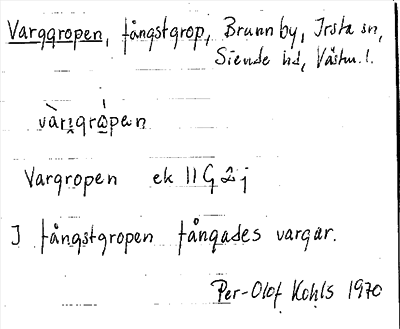 Varggropen, fångstgrop, Brunnby, Irsta sn,
Siende hd, Västm. l.
Vargropen ek 11G 2j
I fångstgropen fångades vargar.
Per-Olof Kohls 1970